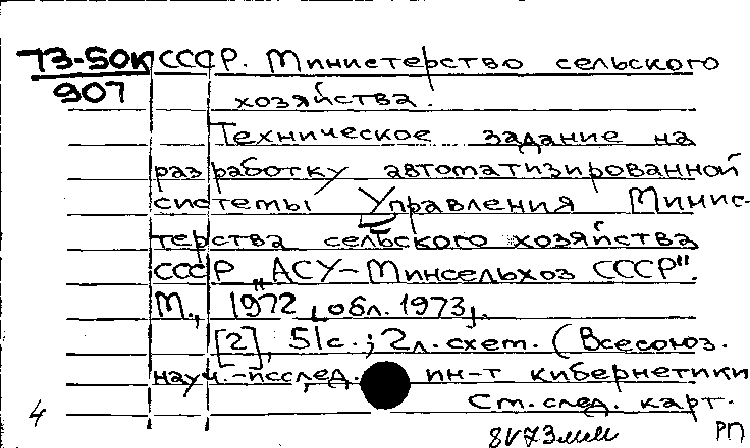 73-50к СССР. Министерство сельского
907 хозяйства.
Техническое задание на
разработку автоматизированной
системы Управления Минис-
терства сельского хозяйства
СССР „АСУ-Минсельхоз СССР".
М., 1972 [обл. 1973].
[2], 51с.; 2л.схем. (Всесоюз.
науч.-исслед. ин-т кибернетики
См.след. карт.
4 РП